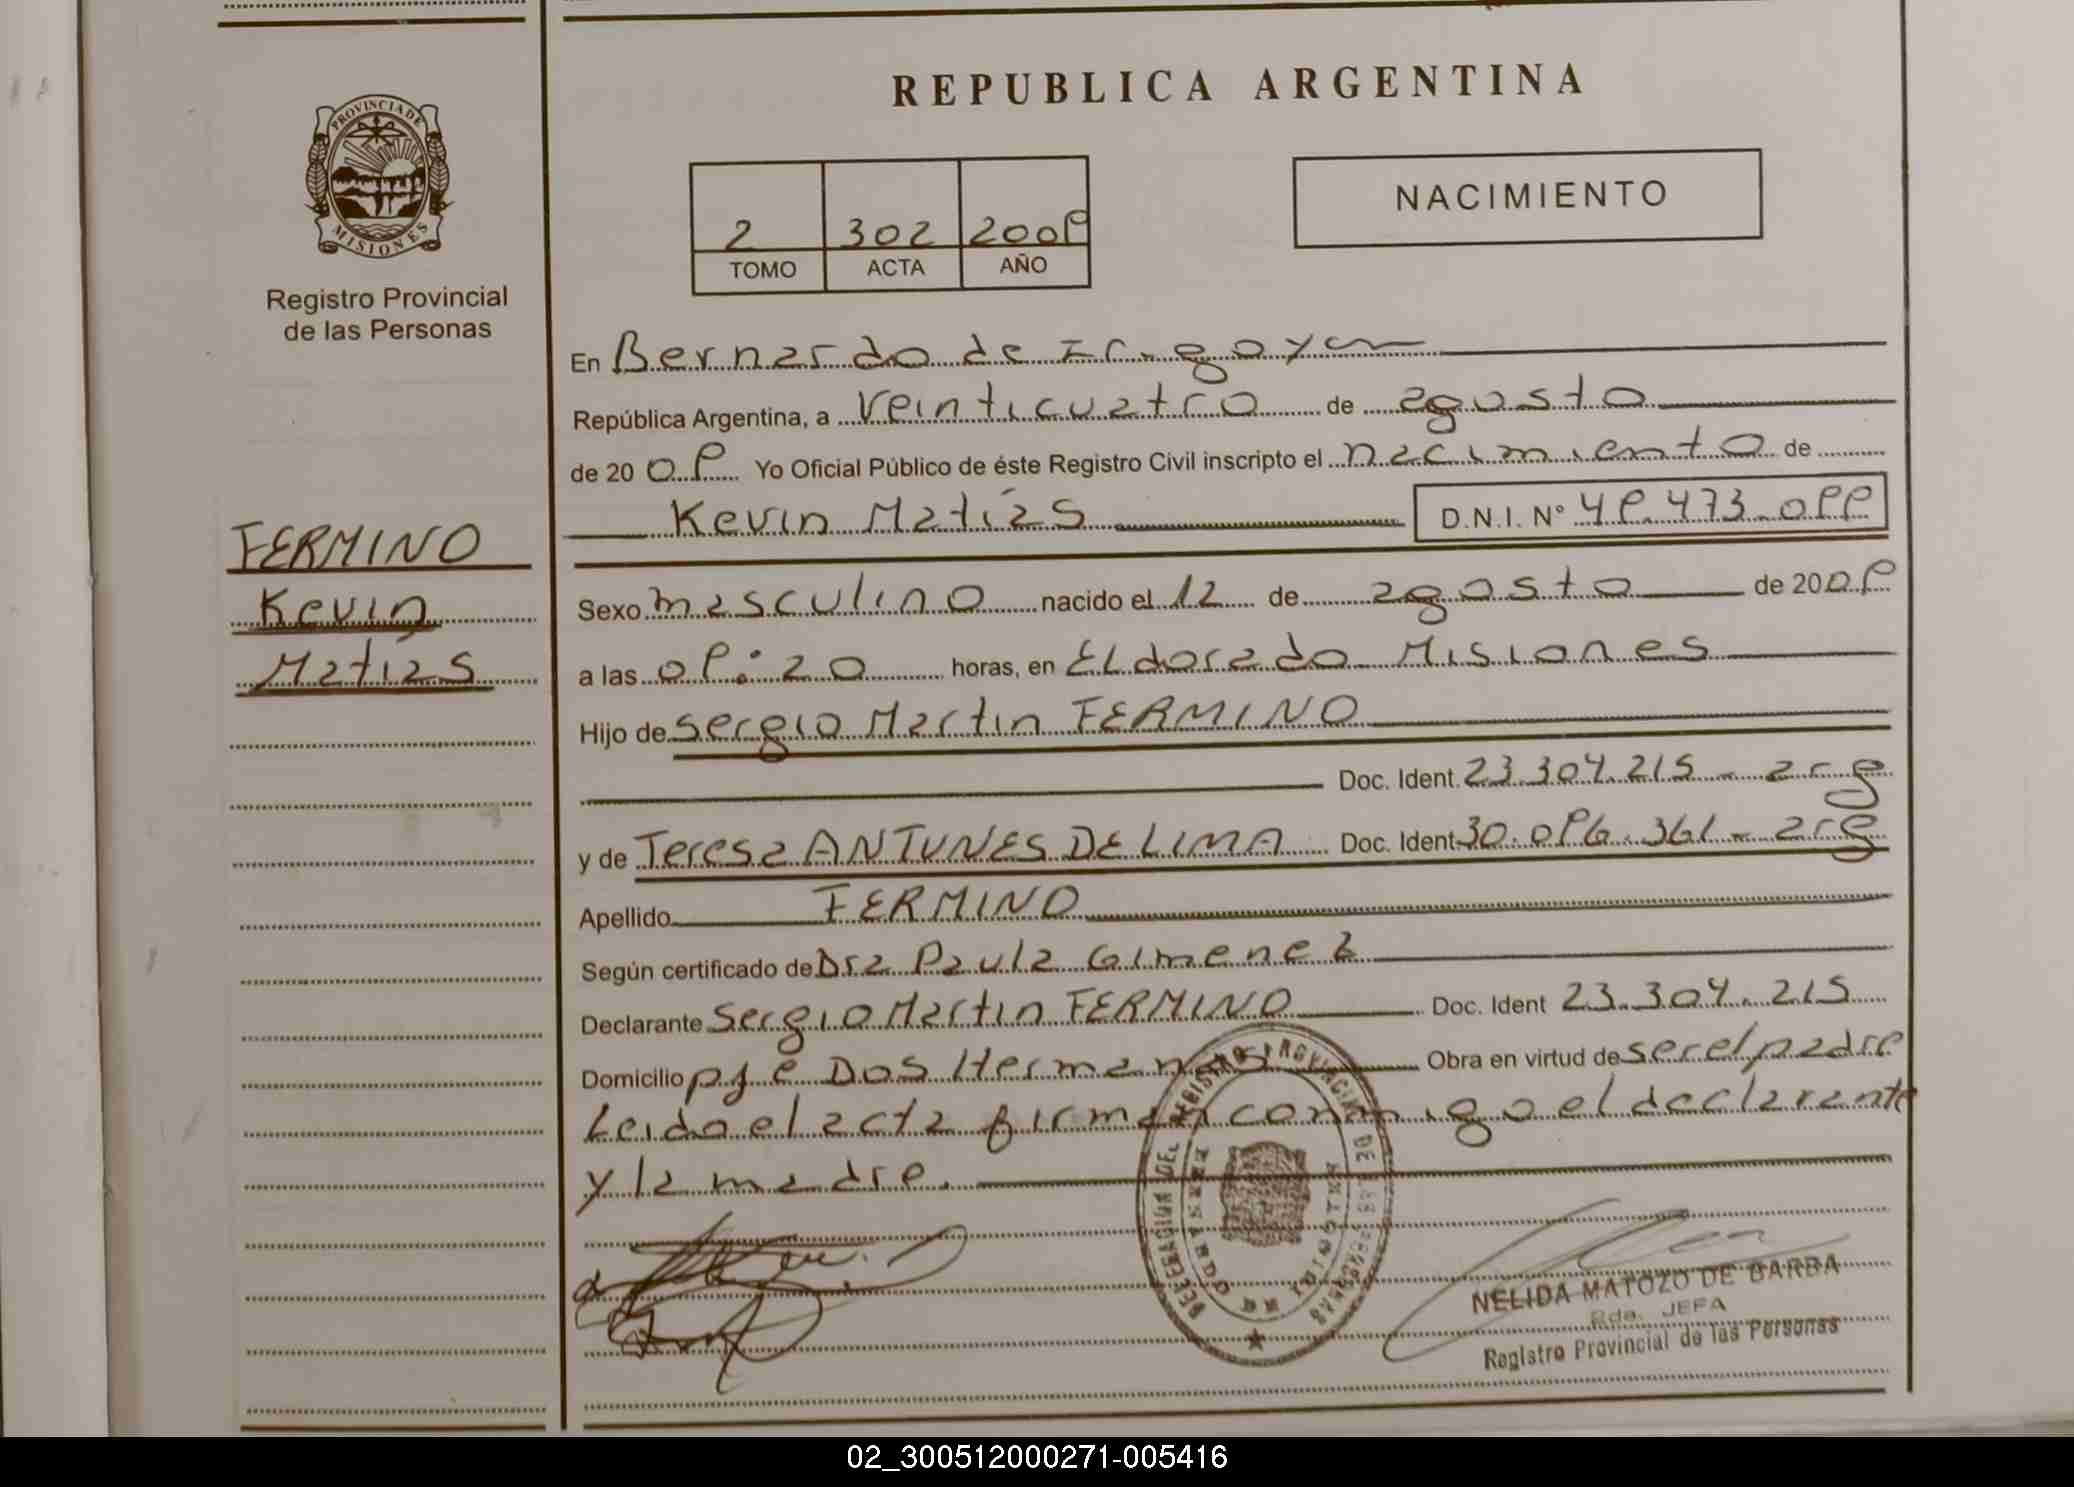 REPUBLICA ARGENTINA
PROVINCIA DE
MISIONES
Registro Provincial
de las Personas
NACIMIENTO
2 302 2008
TOMO ACTA AÑO
En Bernardo de Irigoyen
República Argentina, a veinticuatro de agosto
de 20 08 Yo Oficial Público de éste Registro Civil inscripto el nacimiento de
Kevin Matías D.N.I. N° 48.473.088
FERMINO
Kevin
Matías
Sexo masculino nacido el 12 de agosto de 2008
a las 08:20 horas, en Eldorado Misiones
Hijo de Sergio Martin FERMINO
Doc. Ident. 23.304.215 - arg
y de Teresa ANTUNES DE LIMA Doc. Ident 30.086.361 - arg
Apellido FERMINO
Según certificado de Dra Paula Gimenez
Declarante Sergio Martin FERMINO Doc. Ident 23.304.215
Domicilio pje Dos Hermanas Obra en virtud de ser el padre
Leido el acta firman conmigo el declarante
y la madre.
DELEGACION DEL REGISTRO PROVINCIAL DE LAS PERSONAS
BERNARDO DE IRIGOYEN
NELIDA MATOZO DE BARBA
Rda. JEFA
Registro Provincial de las Personas
02_300512000271-005416